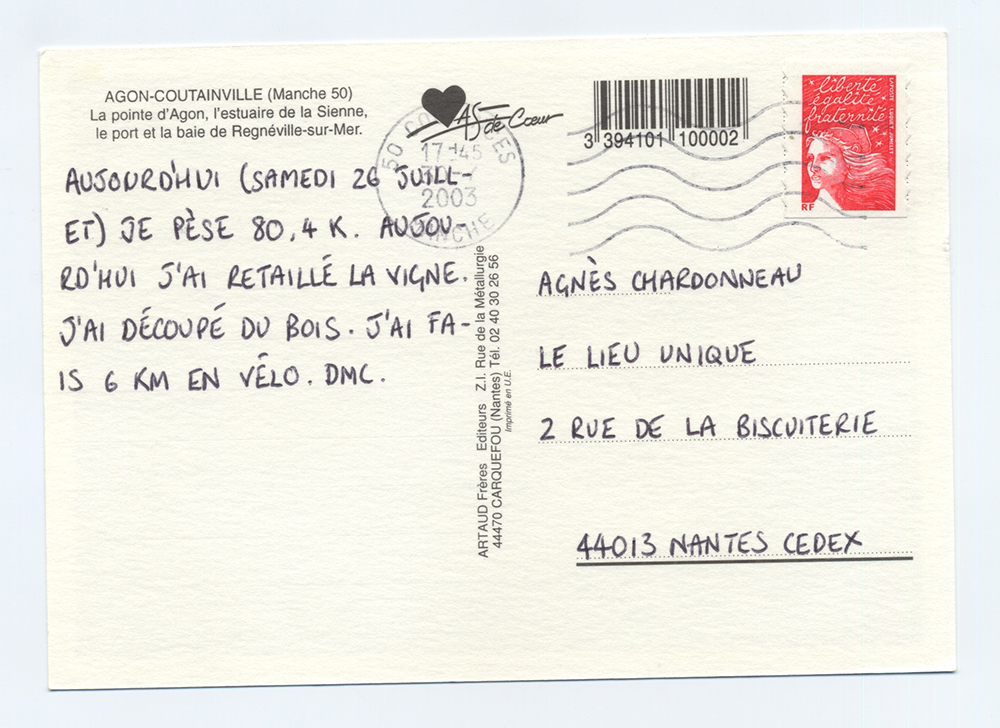 AGON-COUTAINVILLE (Manche 50)
La pointe d'Agon, l'estuaire de la Sienne,
le port et la baie de Regnéville-sur-Mer.
AS de Cœur
3 394101 100002
liberté
égalité
fraternité
RF
LA POSTE
50
17H45
2003
MANCHE
AUJOURD'HUI (SAMEDI 26 JUILL-
ET) JE PÈSE 80,4 K. AUJOU-
RD'HUI J'AI RETAILLÉ LA VIGNE.
J'AI DÉCOUPÉ DU BOIS. J'AI FA-
IS 6 KM EN VÉLO. DMC.
ARTAUD Frères Editeurs Z.I. Rue de la Métallurgie
44470 CARQUEFOU (Nantes) Tél. 02 40 30 26 56
Imprimé en U.E.
AGNÈS CHARDONNEAU
LE LIEU UNIQUE
2 RUE DE LA BISCUITERIE
44013 NANTES CEDEX